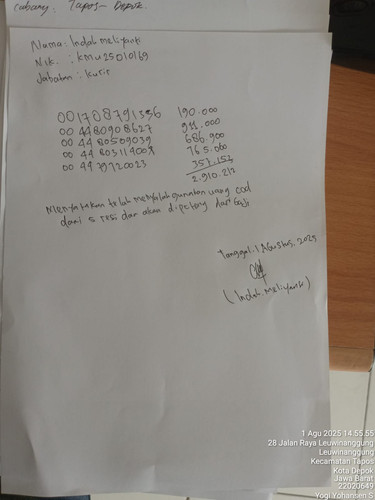 Cabang: Tapos - Depok
Nama : Indah meliyanti
Nik. : kmu25010169
Jabatan : kurir
001708791356 190.000
00 4480908627 911.000
00 4480509039 686.900
00 4480311400 765.000
00 4479720023 357.
2.910.217
Menyatakan telah menyalah gunakan uang cod
dari 5 resi dan akan dipotong dari Gaji
Tanggal : 1 Agustus, 2025
(Indah. meliyanti)
1 Agu 2025 14.55.55
28 Jalan Raya Leuwinanggung
Leuwinanggung
Kecamatan Tapos
Kota Depok
Jawa Barat
22020649
Yogi Yohansen S